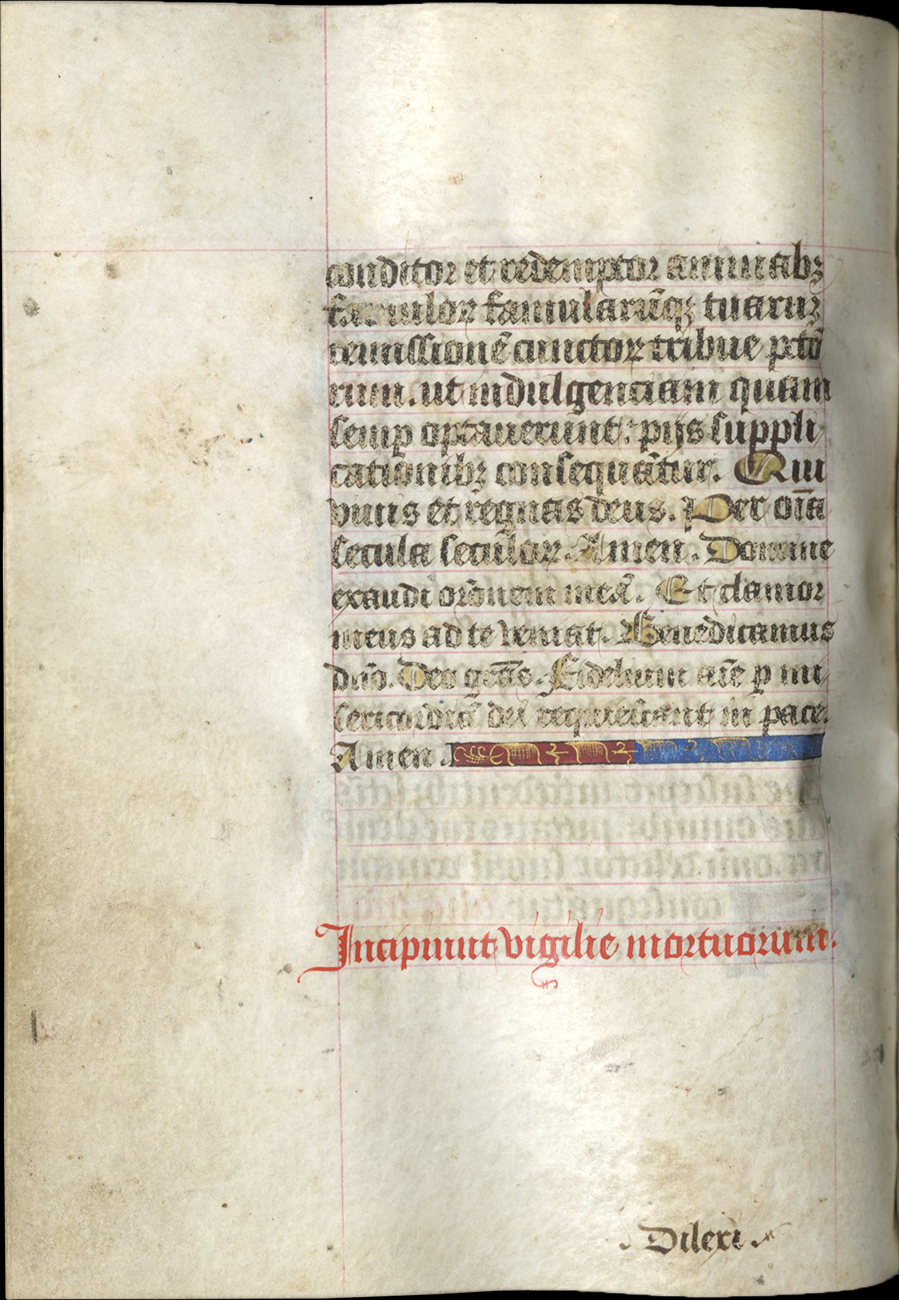 conditor et redemptor animabꝫ
famuloꝝ famularūqꝫ tuarūꝫ
remissionē cunctoꝝ tribue pctō
rum. ut indulgenciam quam
semꝑ optauerunt: pijs suppli
cationibꝫ consequātur. Qui
viuis et regnas deus. Per oīa
secula seculoꝝ. Amen. Domine
exaudi orōnem meā. Et clamor
meus ad te veniat. Benedicamus
dn̄o. Deo grās. Fidelium aīe ꝑ mi
sericordiā dei requiescant in pace.
Amen.
Incipiunt vigilie mortuorum.
. Dilexi .